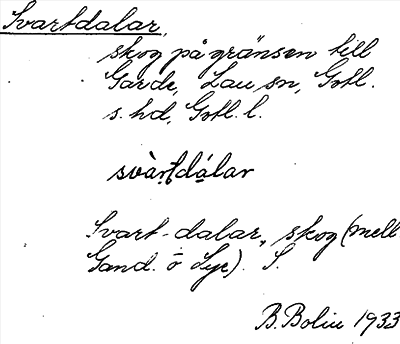 Svartdalar,
skog på gränsen till
Garde, Lau sn, Gotl.
s. hd, Gotl. l.
svàṛṭdálar
Svart-dalar, skog (mell
Gand. o Lye). S.
B. Bolin 1933